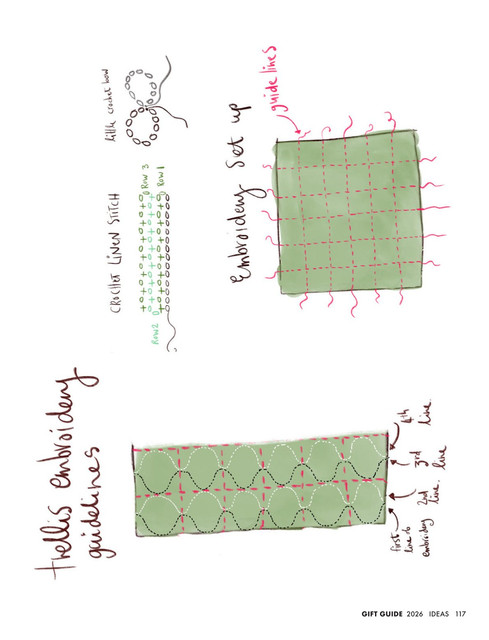 little crochet bow
CROCHET LINEN STITCH
Row 3
Row 1
Row 2
Embroidery Set up
guide lines
trellis embroidery
guidelines
first
line to
embroidery
2nd
line.
3rd
line
4th
line.
GIFT GUIDE 2026 IDEAS 117